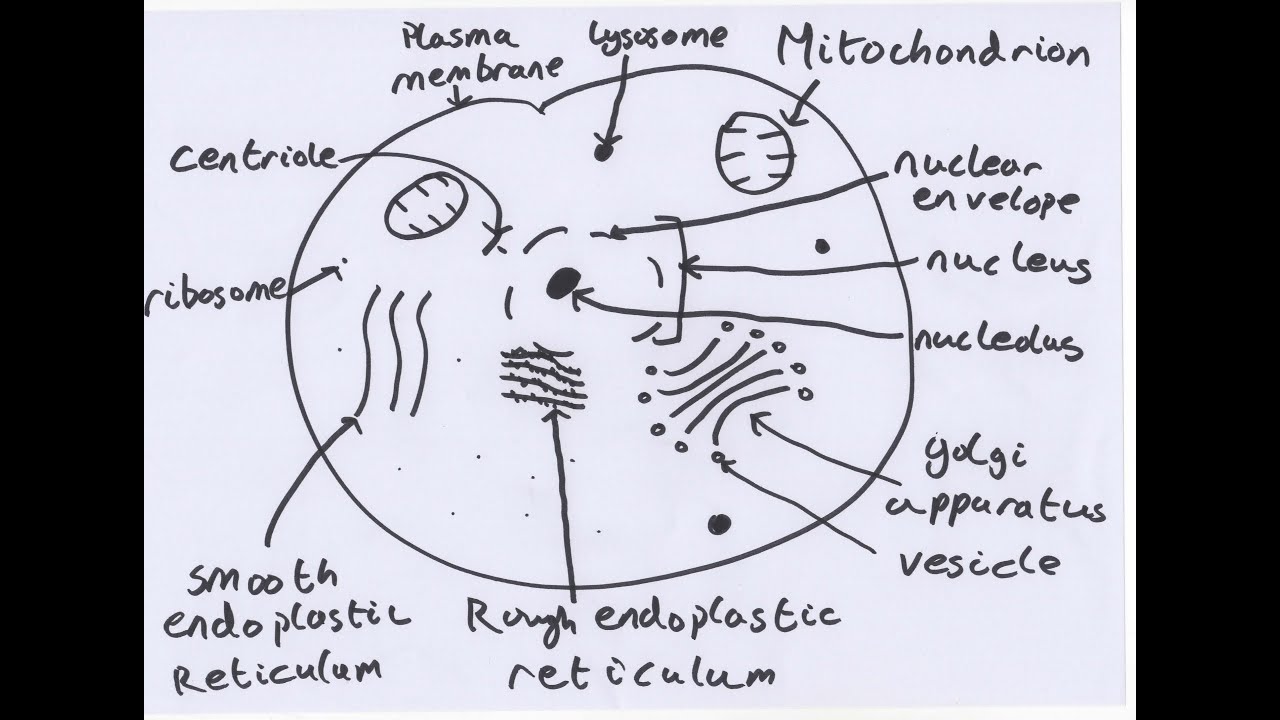 Plasma
membrane
Lysosome
Mitochondrion
Centriole
nuclear
envelope
ribosome
nucleus
nucleolus
golgi
apparatus
vesicle
smooth
endoplastic
Reticulum
Rough endoplastic
reticulum